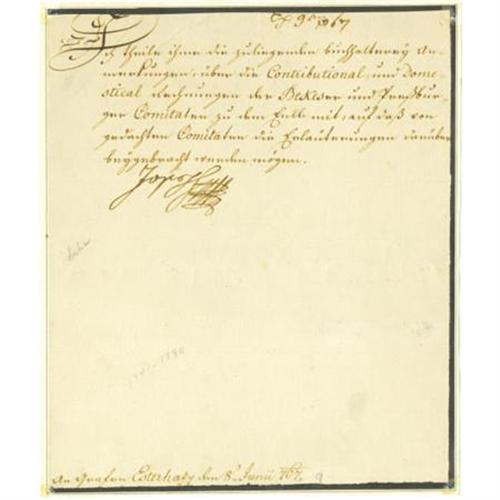 Ich theile ihme die zuliegende buchhalterey An-
merkungen, über die Contributional, und Dome-
stical Rechnungen der Bekeser und Preßbur-
ger Comitaten zu dem Ende mit, auf daß von
gedachten Comitaten die Erläuterungen darüber
beygebracht werden mögen.
Joseph
An Grafen Esterhazy den 8. Junii 767.